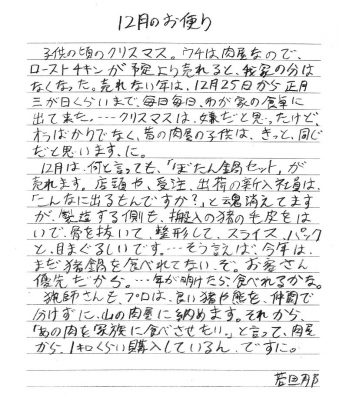 12月のお便り
子供の頃のクリスマス。ウチは肉屋なので、
ローストチキンが予定より売れると、我家の分は
なくなった。売れない年は、12月25日から正月
三が日くらいまで、毎日毎日、わが家の食卓に
出て来た。…クリスマスは、嫌だと思ったけど、
わっぱかりでなく、昔の肉屋の子供は、きっと、同じ
だと思います、に。
12月は、何と言っても、「ぼたん鍋セット」が
売れます。店頭や、受注、出荷の新入社員は、
「こんなに出るもんですか?」と魂消えてます
が、製造する側も、搬入の猪の毛皮をは
いで、骨を抜いて、整形して、スライス、パック
と、目まぐるしいです…そう言えば、今年は、
まだ猪鍋を食べれてない、ぞ。お客さん
優先だから。…年が明けたら食べれるかな。
猟師さんも、プロは、良い猪や熊を、仲間で
分けずに、山の肉屋に納めます。それから、
「あの肉を家族に食べさせたい。」と言って、肉屋
から、1キロくらい購入しているん、ですに。